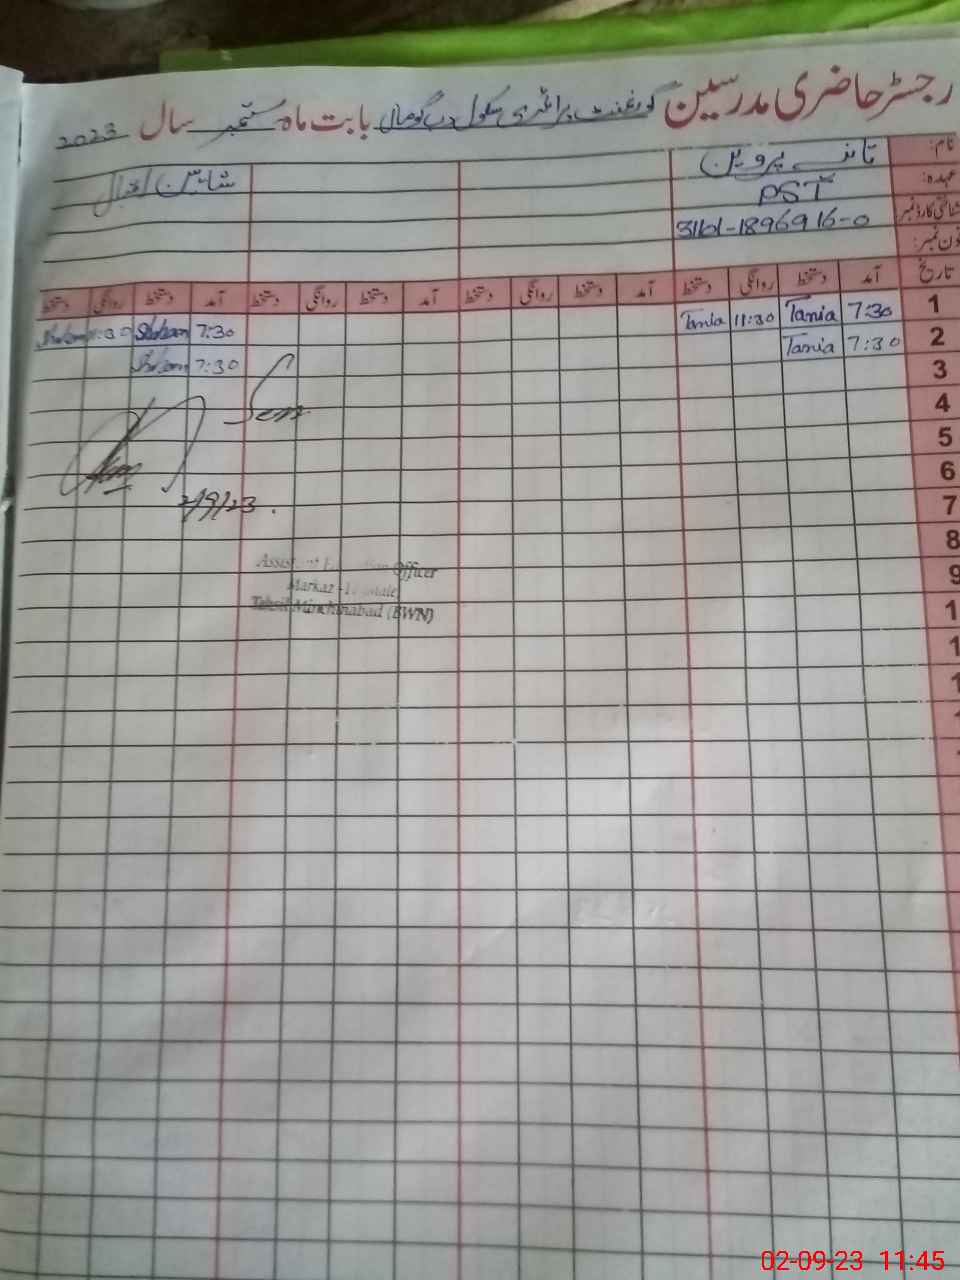 رجسٹر حاضری مدرسین گورنمنٹ پرائمری سکول بابت ماہ ستمبر سال 2023
نام: تانیہ پروین شاہین اقبال
عہدہ: PST
شناختی کارڈ نمبر 31101-1896916-0
فون نمبر:
تاریخ آمد دستخط روانگی دستخط آمد دستخط روانگی دستخط آمد دستخط روانگی دستخط آمد دستخط روانگی دستخط
1 7:30 Tania 11:30 Tania 7:30
2 7:30 Tania 7:30
3
4
5
6
7
2/9/23
8
Assistant Officer
9
Markaz
Tehsil Minchinabad (BWN)
1
1
1
02-09-23 11:45